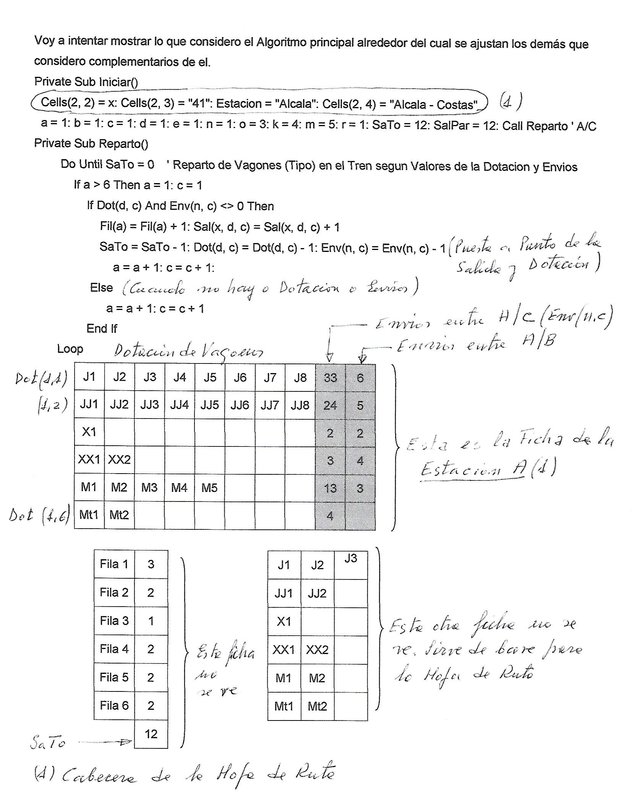 Voy a intentar mostrar lo que considero el Algoritmo principal alrededor del cual se ajustan los demás que
considero complementarios de el.
Private Sub Iniciar()
Cells(2, 2) = x: Cells(2, 3) = "41": Estacion = "Alcala": Cells(2, 4) = "Alcala - Costas" (1)
a = 1: b = 1: c = 1: d = 1: e = 1: n = 1: o = 3: k = 4: m = 5: r = 1: SaTo = 12: SalPar = 12: Call Reparto ' A/C
Private Sub Reparto()
Do Until SaTo = 0 ' Reparto de Vagones (Tipo) en el Tren segun Valores de la Dotacion y Envios
If a > 6 Then a = 1: c = 1
If Dot(d, c) And Env(n, c) <> 0 Then
Fil(a) = Fil(a) + 1: Sal(x, d, c) = Sal(x, d, c) + 1
SaTo = SaTo - 1: Dot(d, c) = Dot(d, c) - 1: Env(n, c) = Env(n, c) - 1 (Puesta a Punto de la
Salida y Dotación)
a = a + 1: c = c + 1:
Else (Cuando no hay o Dotacion o Envios)
a = a + 1: c = c + 1
End If
Envios entre A/C (Env(n,c)
Loop Dotación de Vagones
Envios entre A/B
Dot(1,1) J1 J2 J3 J4 J5 J6 J7 J8 33 6
(1,2) JJ1 JJ2 JJ3 JJ4 JJ5 JJ6 JJ7 JJ8 24 5
X1 2 2
XX1 XX2 3 4
M1 M2 M3 M4 M5 13 3
Dot (1,6) Mt1 Mt2 4
Esta es la Ficha de la
Estacion A(1)
Fila 1 3
Fila 2 2
Fila 3 1
Fila 4 2
Fila 5 2
Fila 6 2
SaTo 12
Esta ficha
no
se ve
J1 J2 J3
JJ1 JJ2
X1
XX1 XX2
M1 M2
Mt1 Mt2
Esta otra ficha no se
ve. Sirve de base para
la Hoja de Ruta
(1) Cabecera de la Hoja de Ruta